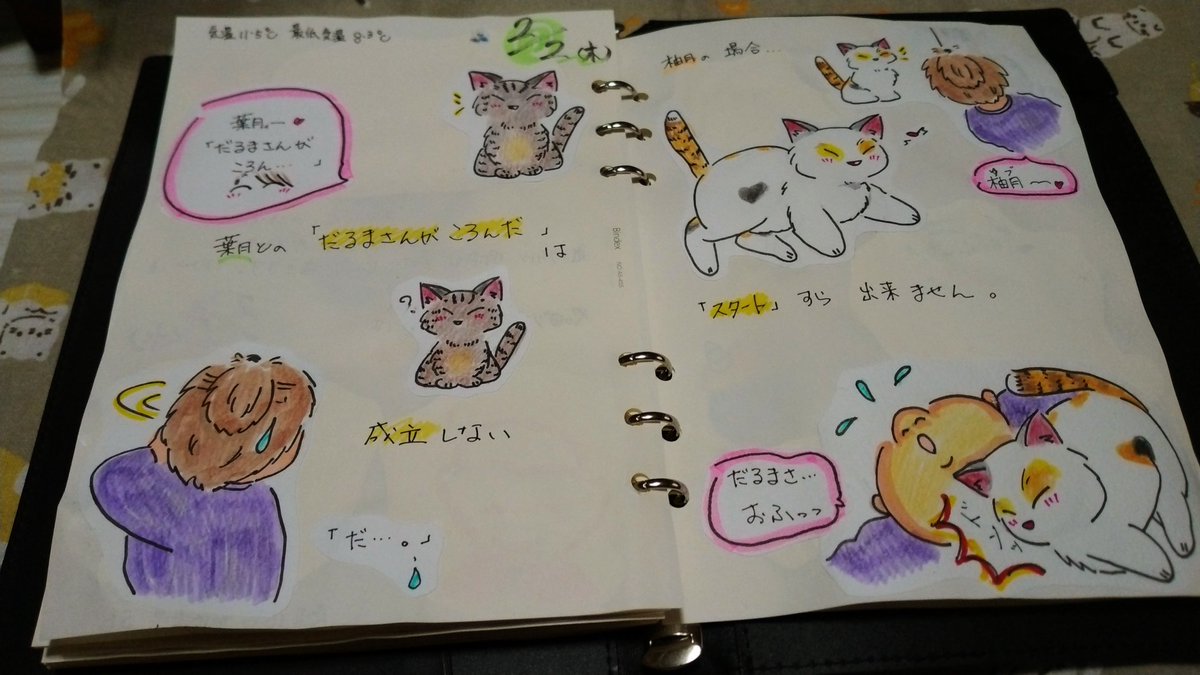 気温11.5℃ 最低気温8.3℃
2/2(木)
葉月ー♥
「だるまさんが
ころん…」
葉月との「だるまさんがころんだ」は
?
成立しない
「だ…。」
Bindex
柚月の場合…
柚月〜♥
「スタート」すら出来ません。
だるまさ…
おふっっ